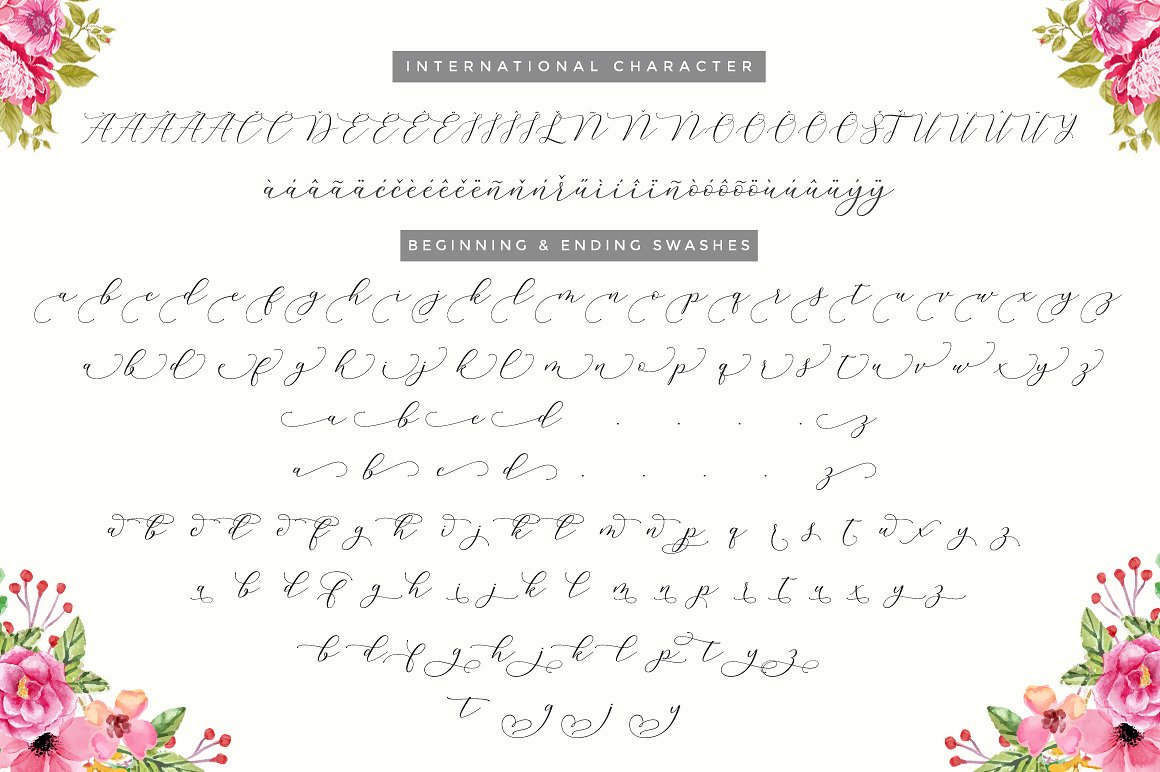 INTERNATIONAL CHARACTER
À Á Â Ã Ä Č Ć D È É Ê Ë Ì Í Î Ï Ľ Ñ Ň Ń Ò Ó Ô Õ Ö Š Ť Ù Ú Û Ü Ý
àáâãäćčèéêěëñňńřűìíîïñòóôõöùúûüýÿ
BEGINNING & ENDING SWASHES
a b c d e f g h i j k l m n o p q r s t u v w x y z
a b d e f g h i j k l m n o p q r s t u v w x y z
a b c d . . . . z
a b c d . . . . z
a b d d e f g h i j k l m n p q r s t u x y z
a b d f g h i j k l m n p r t u x y z
b d f g h j k l p t y z
t g j y